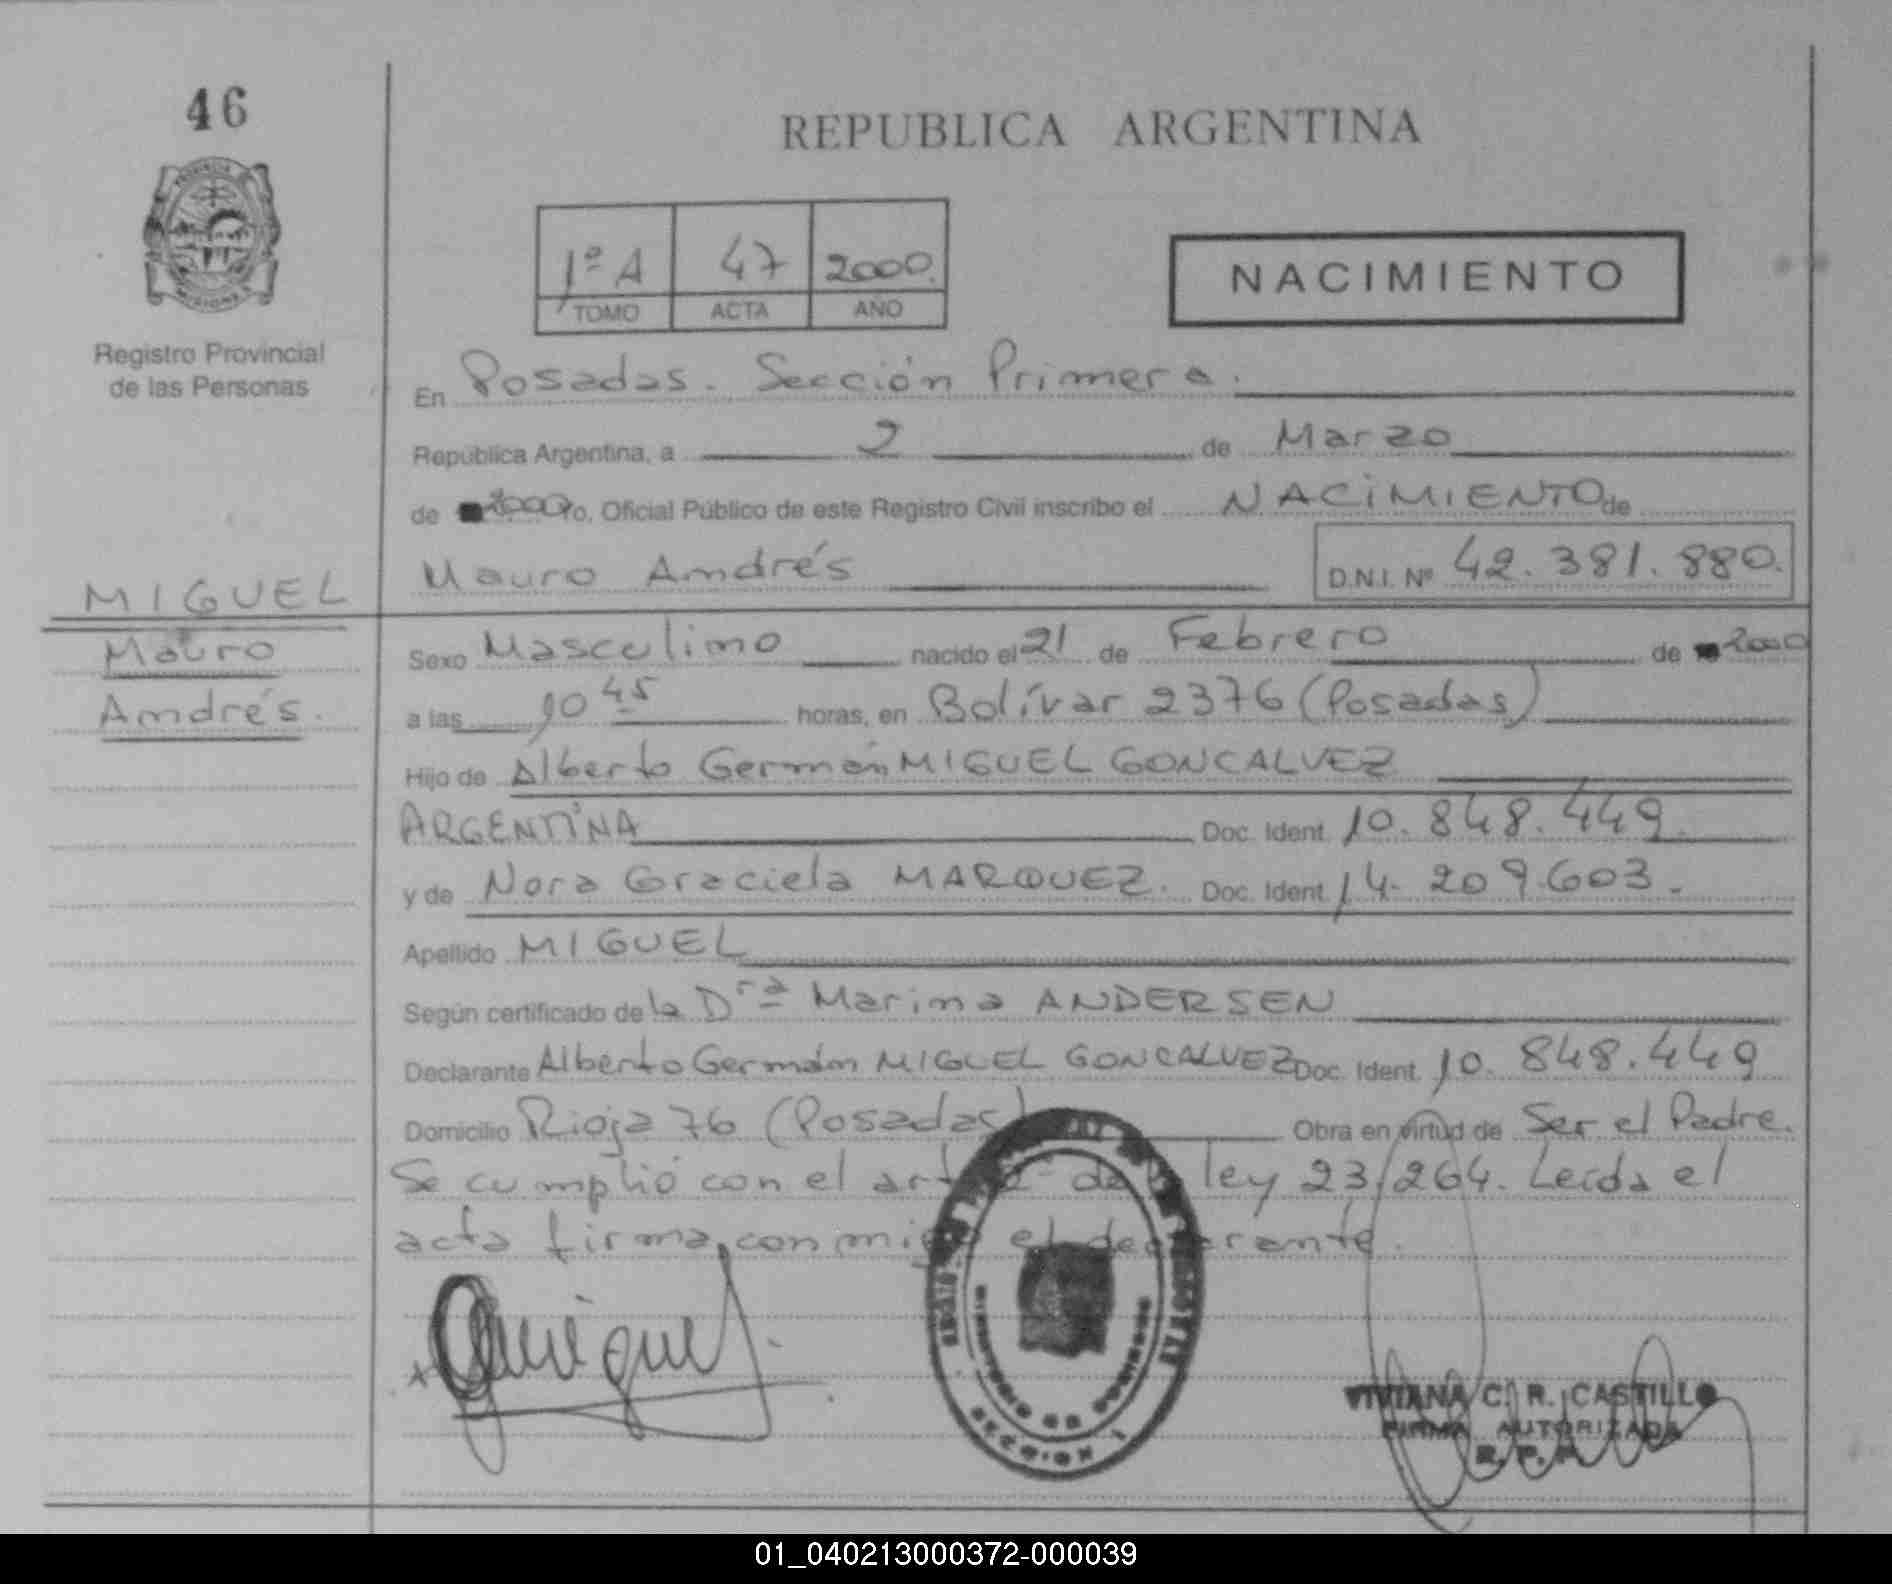 46
REPUBLICA ARGENTINA
1º A 47 2000.
TOMO ACTA AÑO
NACIMIENTO
Registro Provincial
de las Personas
En Posadas. Sección Primera.
República Argentina, a 2 de Marzo
de 2000 Yo, Oficial Público de este Registro Civil inscribo el NACIMIENTO de
Mauro Andrés D.N.I. Nº 42.381.880.
MIGUEL
Mauro
Andrés.
Sexo Masculino nacido el 21 de Febrero de 2000
a las 10 45 horas, en Bolívar 2376 (Posadas)
Hijo de Alberto Germán MIGUEL GONCALVEZ
ARGENTINA Doc. Ident. 10.848.449.
y de Nora Graciela MARQUEZ. Doc. Ident. 14.209.603.
Apellido MIGUEL
Según certificado de la Dra Marina ANDERSEN
Declarante Alberto Germán MIGUEL GONCALVEZ Doc. Ident. 10.848.449
Domicilio Rioja 76 (Posadas) Obra en virtud de Ser el Padre.
Se cumplió con el art de la ley 23.264. Leída el
acta firma conmigo el declarante.
VIVIANA C. R. CASTILLO
FIRMA AUTORIZADA
R. P. P.
SECCION 1
01_040213000372-000039